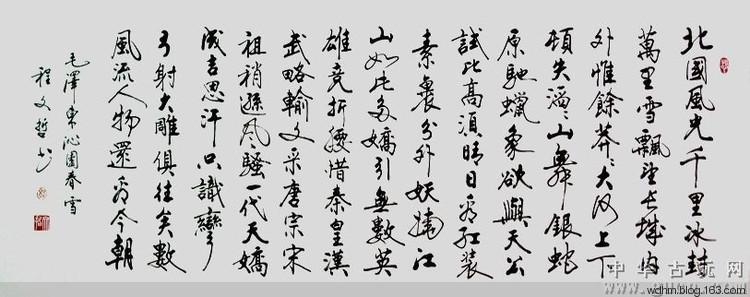 北國風光千里冰封
萬里雪飄望长城内
外惟餘莽々大河上下
頓失滔々山舞銀蛇
原馳蠟象欲與天公
試比高須晴日看红装
素裹分外妖嬈江
山如此多嬌引無數英
雄竞折腰惜秦皇漢
武略輸文采唐宗宋
祖稍遜风騷一代天嬌
成吉思汗只識彎
弓射大雕俱往矣數
風流人物還看今朝
毛澤東沁園春雪
程文哲书
中华古玩网
wdhm.blog.163.com